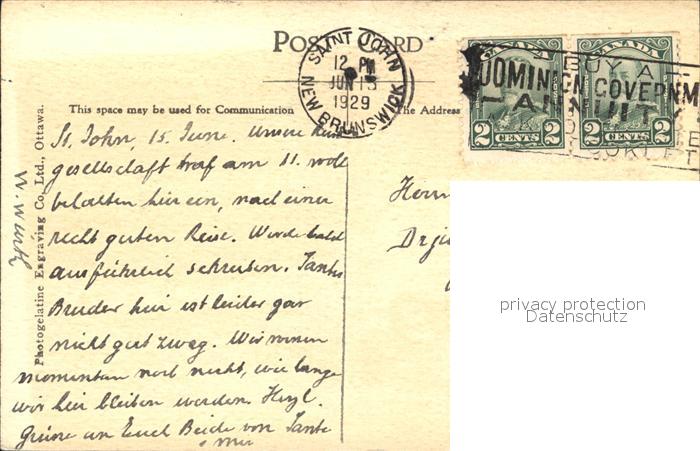 POST CARD
SAINT JOHN
12 PM
JUN 15
1929
NEW BRUNSWICK
CANADA
CANADA
BUY A
DOMINION GOVERNM
ANNUITY
2 CENTS 2
2 CENTS 2
This space may be used for Communication
The Address
Photogelatine Engraving Co. Ltd., Ottawa.
St. John, 15. June. Unsere
gesellschaft traf am 11. wohl
behalten hier ein, nach einer
recht guten Reise. Werde bald
ausführlich schreiben. Tantes
Bruder hier ist leider gar
nicht gut zweg. Wir wissen
momentan noch nicht, wie lange
wir hier bleiben werden. Herzl.
Grüsse an Euch Beide von Tante
Herrn
privacy protection
Datenschutz